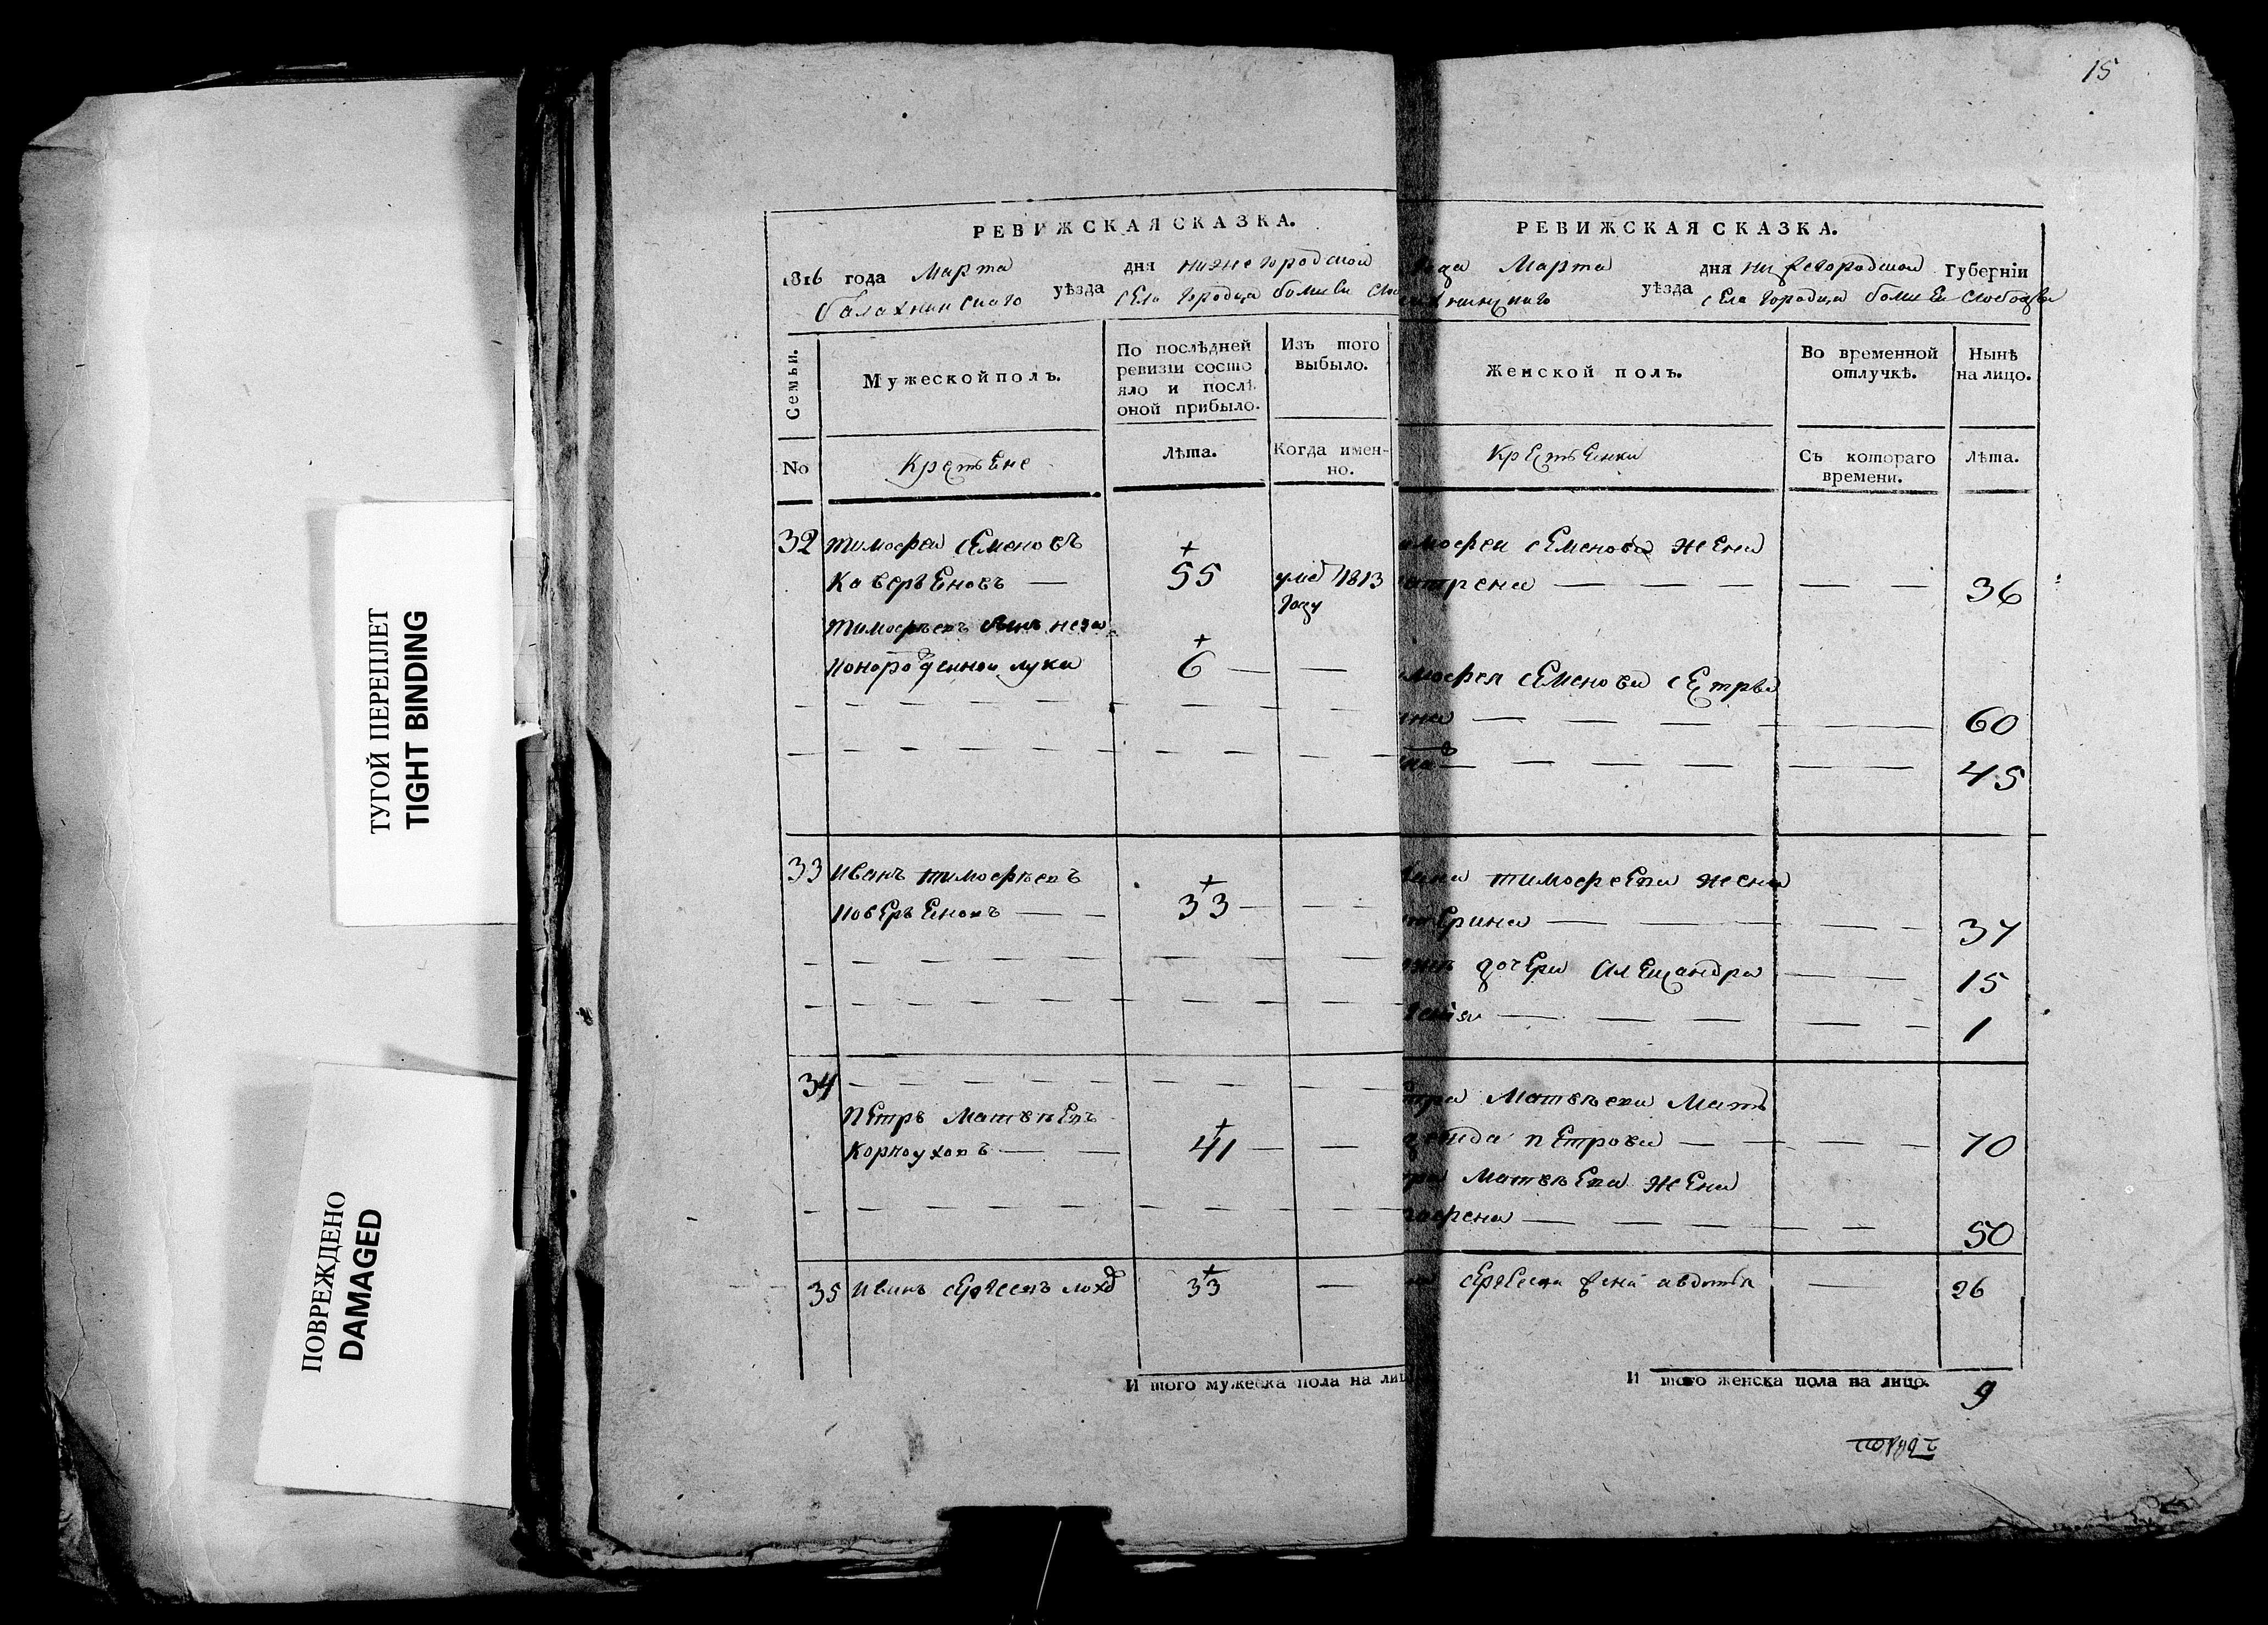 15
ТУГОЙ ПЕРЕПЛЕТ
TIGHT BINDING
ПОВРЕЖДЕНО
DAMAGED
РЕВИЖСКАЯ СКАЗКА.
1816 года Марта дня нижегородской
балахнинскаго уѣзда села городца
Семьи.
Мужеской полъ.
По послѣдней ревизіи состо
яло и послѣ
оной прибыло.
Изъ того выбыло.
No
Лѣта.
Когда имен-
но.
32 тимофеи семеновъ
Каверьеновъ — 55 умеѣ 1813
году
тимофѣевъ сынъ неза
конорожденнои лука 6 — —
33 Иванъ тимофѣевъ
коверьеновъ — — 33 — —
34
петръ Матвѣевъ
Корноуховъ — — 41 — —
35 иванъ сергеевъ 33 —
И того мужеска пола на лиц
РЕВИЖСКАЯ СКАЗКА.
года Марта дня нижегородской Губерніи
уѣзда села городца слободы
Женской полъ.
Во временной
отлучкѣ.
Нынѣ
на лицо.
крестьенки
Съ котораго
времени.
Лѣта.
имофеи семенова жена
атрена — — — — — 36
имофея семенова сестры
нна — — — — — 60
45
вана тимофеева жена
терина — — — — — 37
дочери александра — — 15
— — — — — — 1
тра Матвѣева Мать
петрова — — — — 70
тра Матвѣева жена
афена — — — — — — 50
сергеева жена авдотья — 26
И того женска пола на лицо. 9